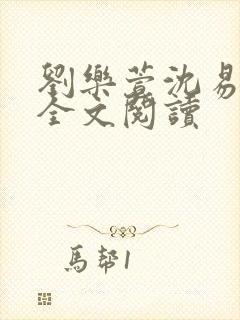 劉樂萱沈易
全文閱讀
馬幫1